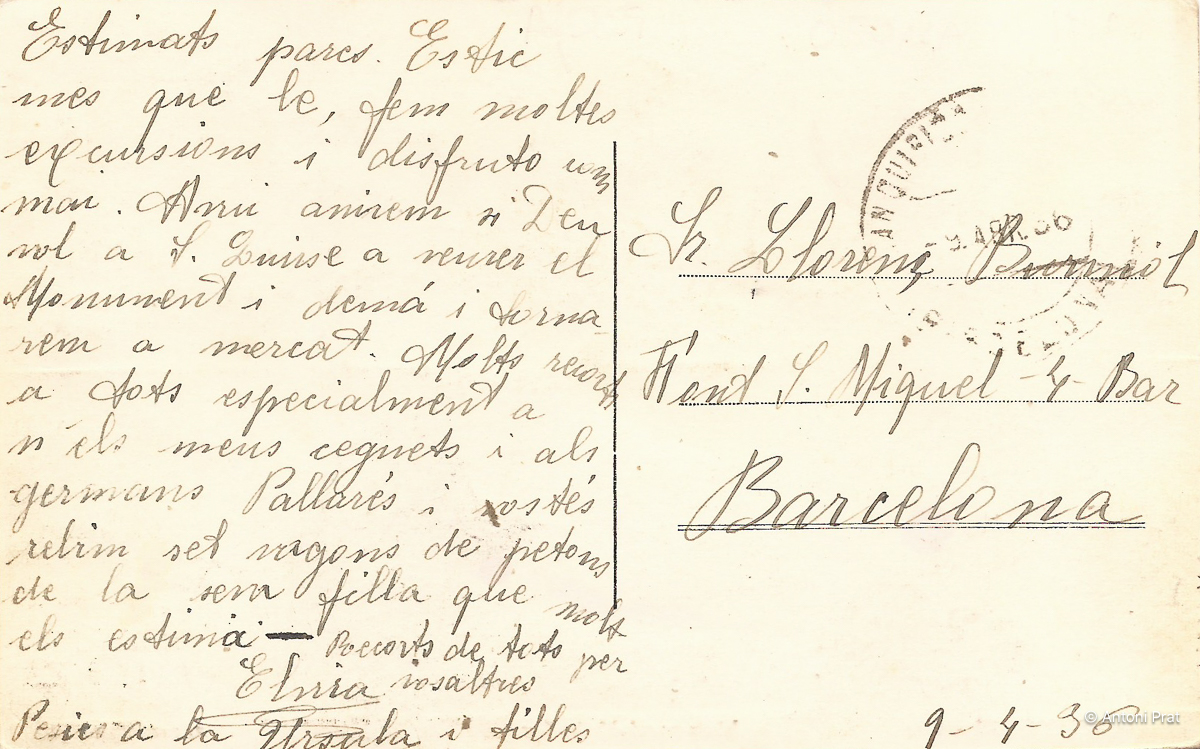 Estimats pares. Estic
mes que be, fem moltes
excursions i disfruto com
mai. Avui anirem si Deu
vol a S. Lluise a veurer el
Monument i demá i torna-
rem a mercat. Molts recorts
a tots especialment a
n'els meus ceguets i als
germans Pallarés i vostés
rebrin set vagons de petons
de la seva filla que molt
els estima — Recorts de tots per
Elvira vosaltres
a la Ursula i filles
ANQUICI
- 9 ABR. 36
Sr. Llorenç
Fond S. Miquel - 4 - Bar
Barcelona
9 - 4 - 36
© Antoni Prat